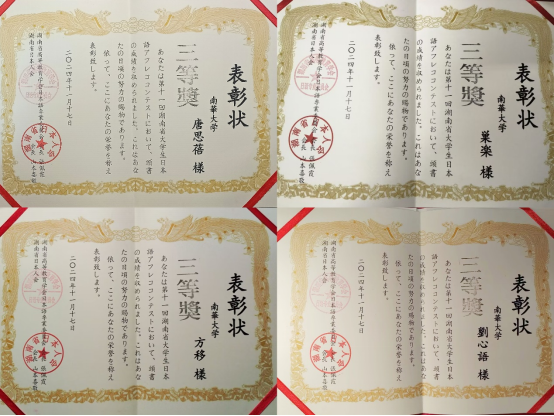 表彰状
南華大学
唐思蓓 様
三等獎
あなたは第十一回湖南省大学生日本
語アフレココンテストにおいて、頭書
の成績を収められました。これはあな
たの日頃の努力の賜物であります。
依って、ここにあなたの栄誉を称え
表彰致します。
二〇二四年十一月十七日
湖南省高等教育学会日本語専業委員会
会長 張佩霞
湖南省日本人会
会長 山本喜敬
表彰状
南華大学
巣楽 様
三等獎
あなたは第十一回湖南省大学生日本
語アフレココンテストにおいて、頭書
の成績を収められました。これはあな
たの日頃の努力の賜物であります。
依って、ここにあなたの栄誉を称え
表彰致します。
二〇二四年十一月十七日
湖南省高等教育学会日本語専業委員会
会長 張佩霞
湖南省日本人会
会長 山本喜敬
表彰状
南華大学
方移 様
三等獎
あなたは第十一回湖南省大学生日本
語アフレココンテストにおいて、頭書
の成績を収められました。これはあな
たの日頃の努力の賜物であります。
依って、ここにあなたの栄誉を称え
表彰致します。
二〇二四年十一月十七日
湖南省高等教育学会日本語専業委員会
会長 張佩霞
湖南省日本人会
会長 山本喜敬
表彰状
南華大学
劉心語 様
三等獎
あなたは第十一回湖南省大学生日本
語アフレココンテストにおいて、頭書
の成績を収められました。これはあな
たの日頃の努力の賜物であります。
依って、ここにあなたの栄誉を称え
表彰致します。
二〇二四年十一月十七日
湖南省高等教育学会日本語専業委員会
会長 張佩霞
湖南省日本人会
会長 山本喜敬